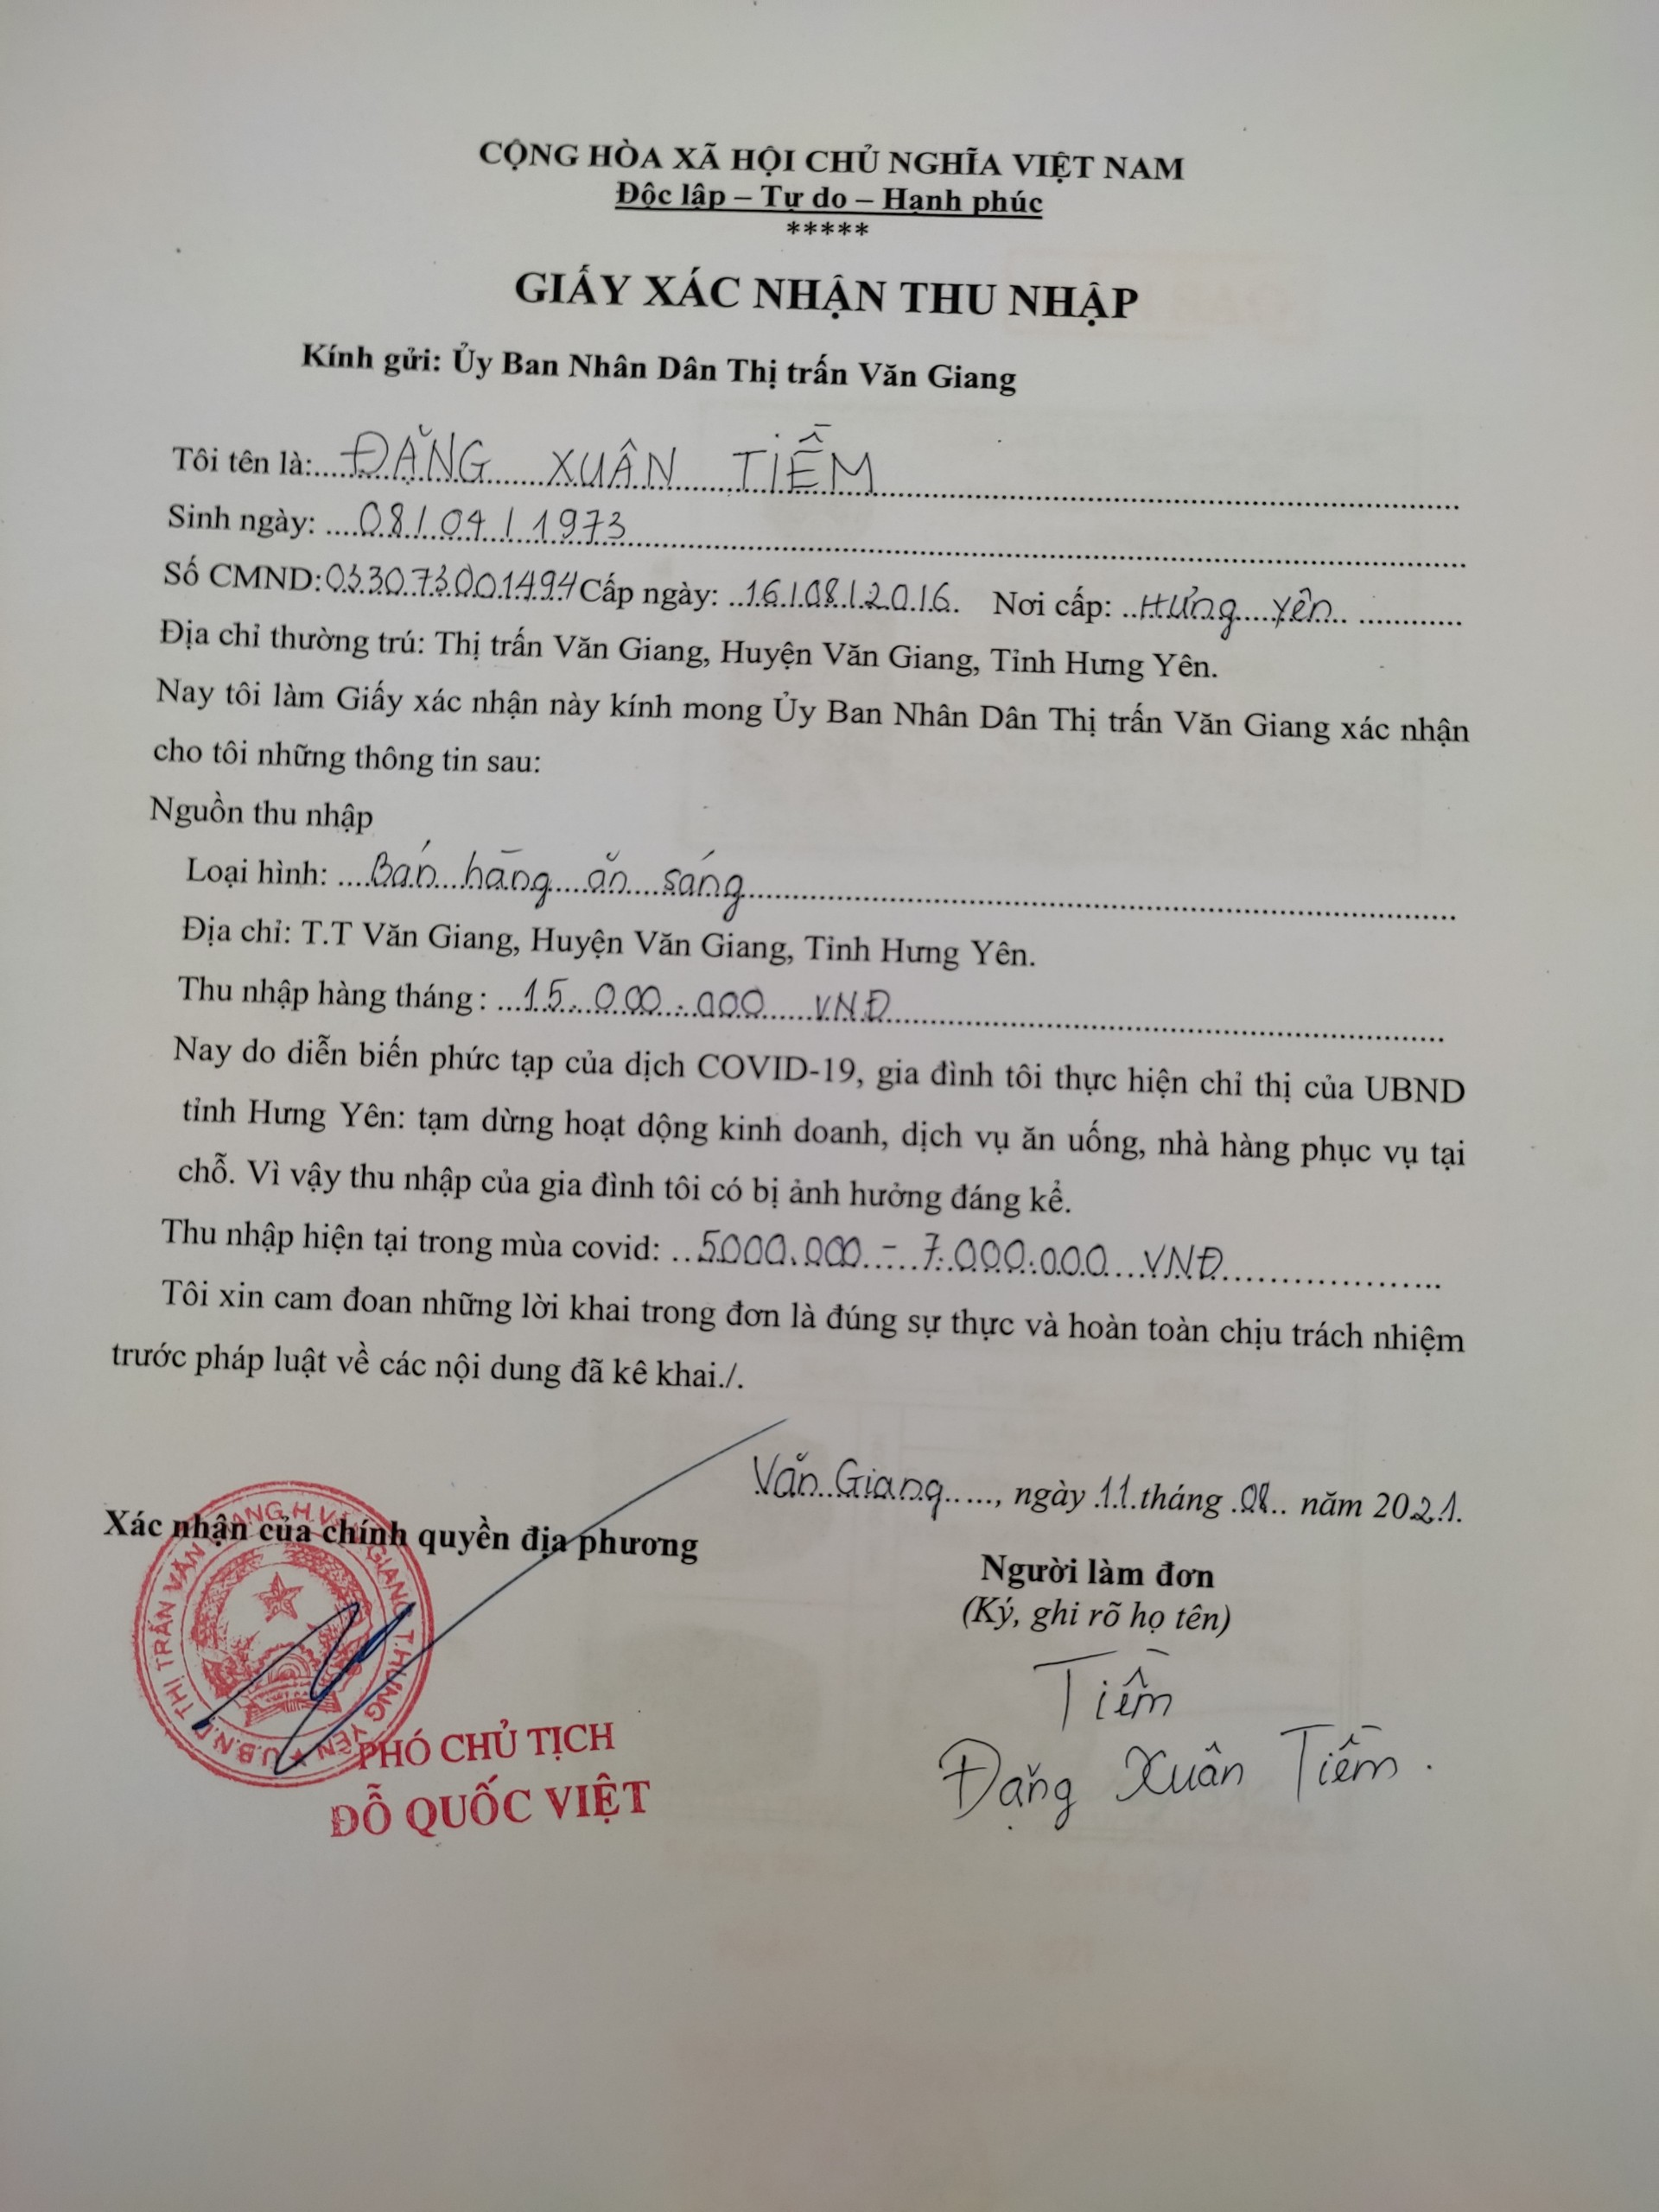 CỘNG HÒA XÃ HỘI CHỦ NGHĨA VIỆT NAM
Độc lập – Tự do – Hạnh phúc
*****
GIẤY XÁC NHẬN THU NHẬP
Kính gửi: Ủy Ban Nhân Dân Thị trấn Văn Giang
Tôi tên là: ĐẶNG XUÂN TIỀM
Sinh ngày: 08/04/1973
Số CMND: 033073001494 Cấp ngày: 16/08/2016. Nơi cấp: Hưng Yên
Địa chỉ thường trú: Thị trấn Văn Giang, Huyện Văn Giang, Tỉnh Hưng Yên.
Nay tôi làm Giấy xác nhận này kính mong Ủy Ban Nhân Dân Thị trấn Văn Giang xác nhận
cho tôi những thông tin sau:
Nguồn thu nhập
Loại hình: Bán hàng ăn sáng
Địa chỉ: T.T Văn Giang, Huyện Văn Giang, Tỉnh Hưng Yên.
Thu nhập hàng tháng : 15.000.000 VNĐ
Nay do diễn biến phức tạp của dịch COVID-19, gia đình tôi thực hiện chỉ thị của UBND
tỉnh Hưng Yên: tạm dừng hoạt dộng kinh doanh, dịch vụ ăn uống, nhà hàng phục vụ tại
chỗ. Vì vậy thu nhập của gia đình tôi có bị ảnh hưởng đáng kể.
Thu nhập hiện tại trong mùa covid: 5000.000 - 7.000.000 VNĐ
Tôi xin cam đoan những lời khai trong đơn là đúng sự thực và hoàn toàn chịu trách nhiệm
trước pháp luật về các nội dung đã kê khai./.
Văn Giang, ngày 11 tháng 08 năm 2021.
Xác nhận của chính quyền địa phương
Người làm đơn
(Ký, ghi rõ họ tên)
U.B.N.D THỊ TRẤN VĂN GIANG.H.VĂN GIANG T.HƯNG YÊN
Tiềm
PHÓ CHỦ TỊCH
ĐỖ QUỐC VIỆT
Đặng Xuân Tiềm.